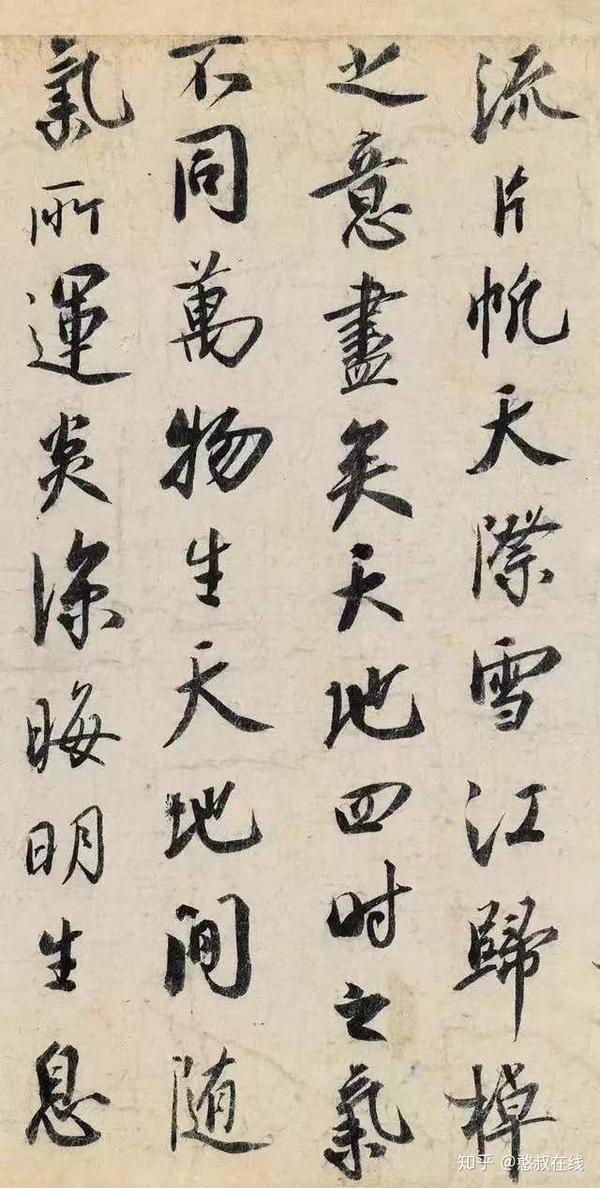 流片帆天際雪江歸棹
之意盡矣天地四时之氣
不同萬物生天地間随
氣所運炎涼晦明生息
知乎 @憨叔在线